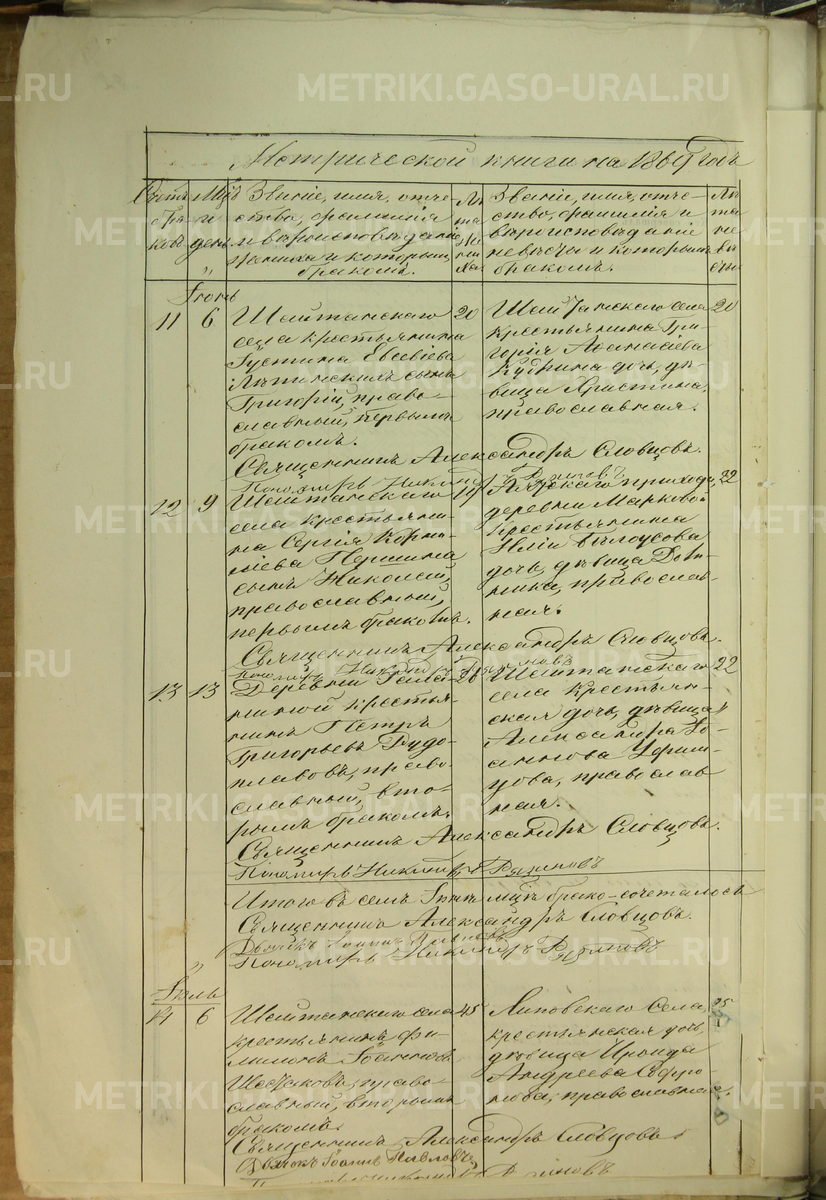 METRIKI.GASO-URAL.RU
Метрической книги на 1869 годъ
Счетъ браковъ
Мцъ и день
Званіе, имя, отчество, фамилія и вѣроисповѣданіе жениха и которымъ бракомъ.
Лѣта жениха
Званіе, имя, отчество, фамилія и вѣроисповѣданіе невѣсты и которымъ бракомъ.
Лѣта невѣсты
Іюнь
11 6
Шайтанскаго
села крестьянина
Густина Евсевіева
сынъ
Григорій, право-
славный, первымъ
бракомъ.
20
Шайтанскаго села
крестьянина Гри-
горія Аѳанасіева
Кудрина дочь, дѣ-
вица Христина,
православная.
20
Священникъ Александръ Словцовъ.
Пономарь
12 9
Шайтанскаго
села крестьяни-
на Сергія Корни-
ліева Першина
сынъ Николай,
православный,
первымъ бракомъ.
19
прихода,
деревни Марковой
крестьянина
Иліи Бѣлоусова
дочь, дѣвица Дом-
ника, православ-
ная.
22
Священникъ Александръ Словцовъ.
Пономарь
13 13
Деревни
крестья-
нинъ Петръ
Григорьевъ Рудо-
плавовъ, право-
славный, вто-
рымъ бракомъ.
Шайтанскаго
села крестьян-
ская дочь, дѣвица
Александра Іо-
аннова Уфим-
цова, православ-
ная.
22
Священникъ Александръ Словцовъ.
Пономарь
Итого въ семъ Іюнѣ мцѣ брако-сочеталось
Священникъ Александръ Словцовъ.
Дьячекъ Іоаннъ
Пономарь
Іюль
14 6
Шайтанскаго села
крестьянинъ Фи-
лимонъ Іоанновъ
право-
славный, вторымъ
бракомъ.
45
Липовскаго села,
крестьянская дочь,
дѣвица Ираида
Андреева Софро-
нова, православная.
Священникъ Александръ Словцовъ
Дьячокъ Іоаннъ Павловъ